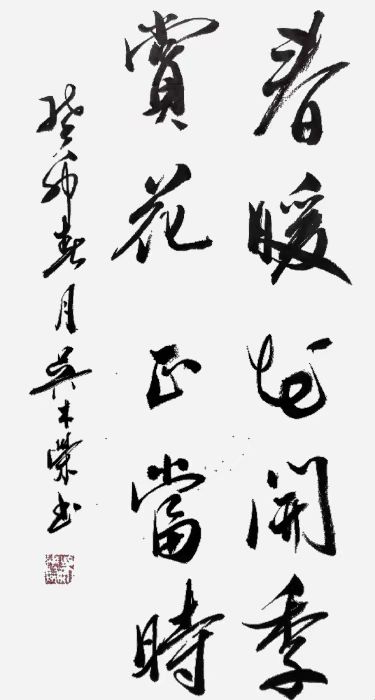 春暖花開季
賞花正當時
癸卯春月吳木榮书